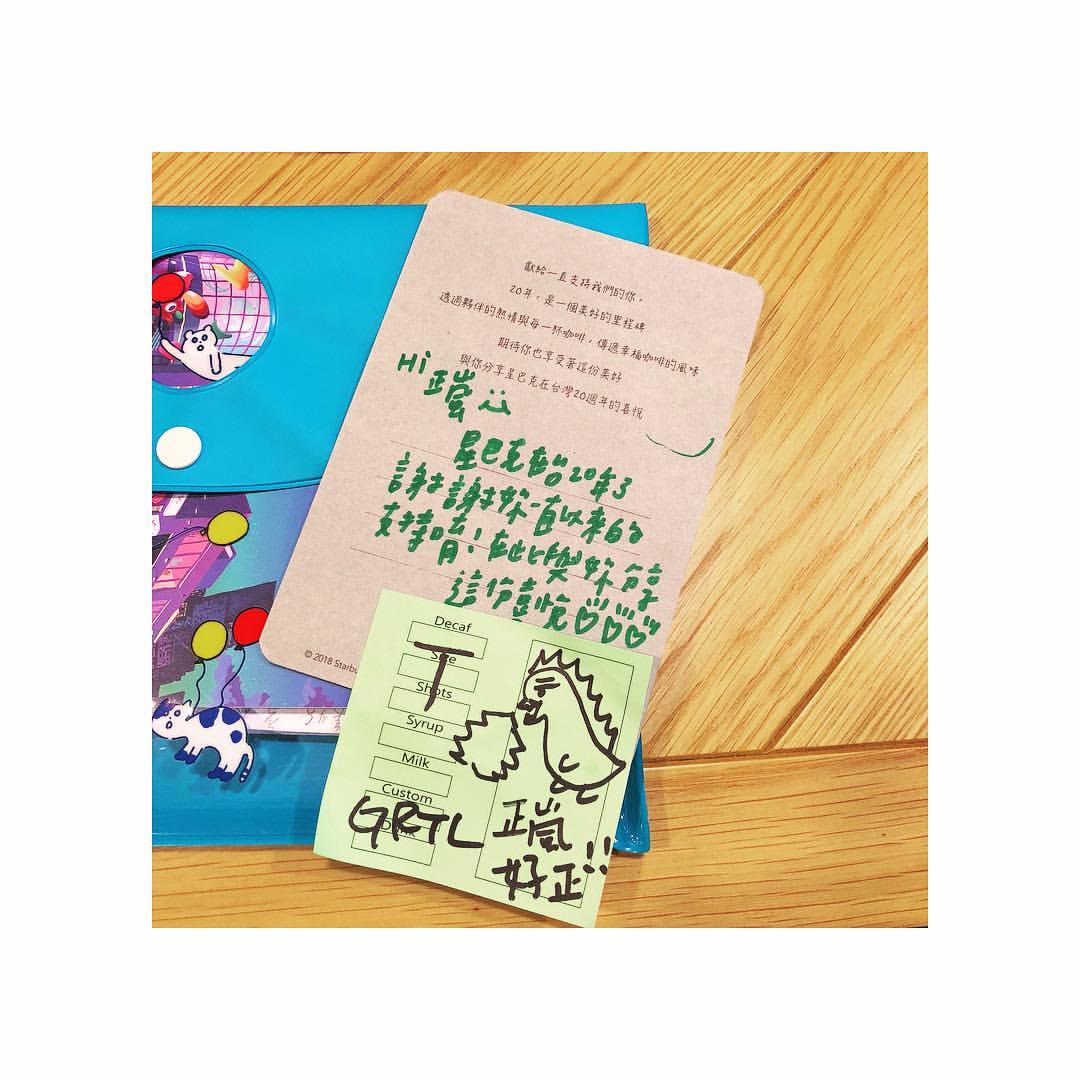 獻給一直支持我們的你，
20年，是一個美好的里程碑
透過夥伴的熱情與每一杯咖啡，傳遞幸福咖啡的風味
期待你也享受著這份美好
與你分享星巴克在台灣20週年的喜悅
Hi
正嵐
星巴克在台20年了
謝謝妳一直以來的
支持唷！在此與妳分享
這份喜悅♡♡♡
© 2018 Starbu
Decaf
Size
T
Shots
Syrup
Milk
Custom
Drink
GRTL
正嵐
好正!!